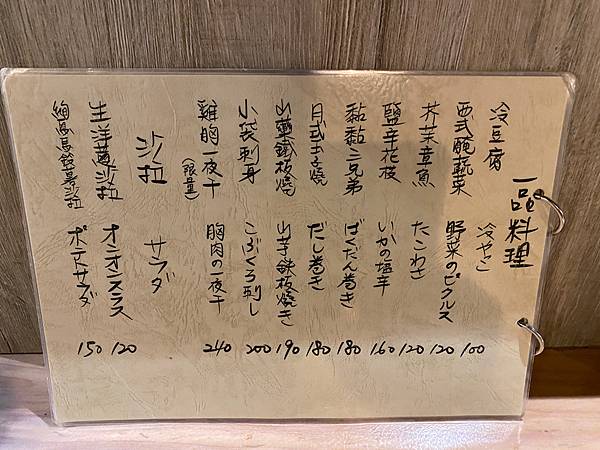 一品料理
冷豆腐 冷やっこ 100
西式醃蔬菜 野菜のピクルス 120
芥茉章魚 たこわさ 120
鹽辛花枝 いかの塩辛 160
黏黏三兄弟 ばくだん巻き 180
日式玉子燒 だし巻き 180
山藥鐵板燒 山芋鉄板焼き 190
小袋刺身 こぶくろ刺し 200
雞胸一夜干(限量) 胸肉の一夜干 240
沙拉 サラダ
生洋蔥沙拉 オニオンスラス 120
馬鈴薯沙拉 ポテトサラダ 150